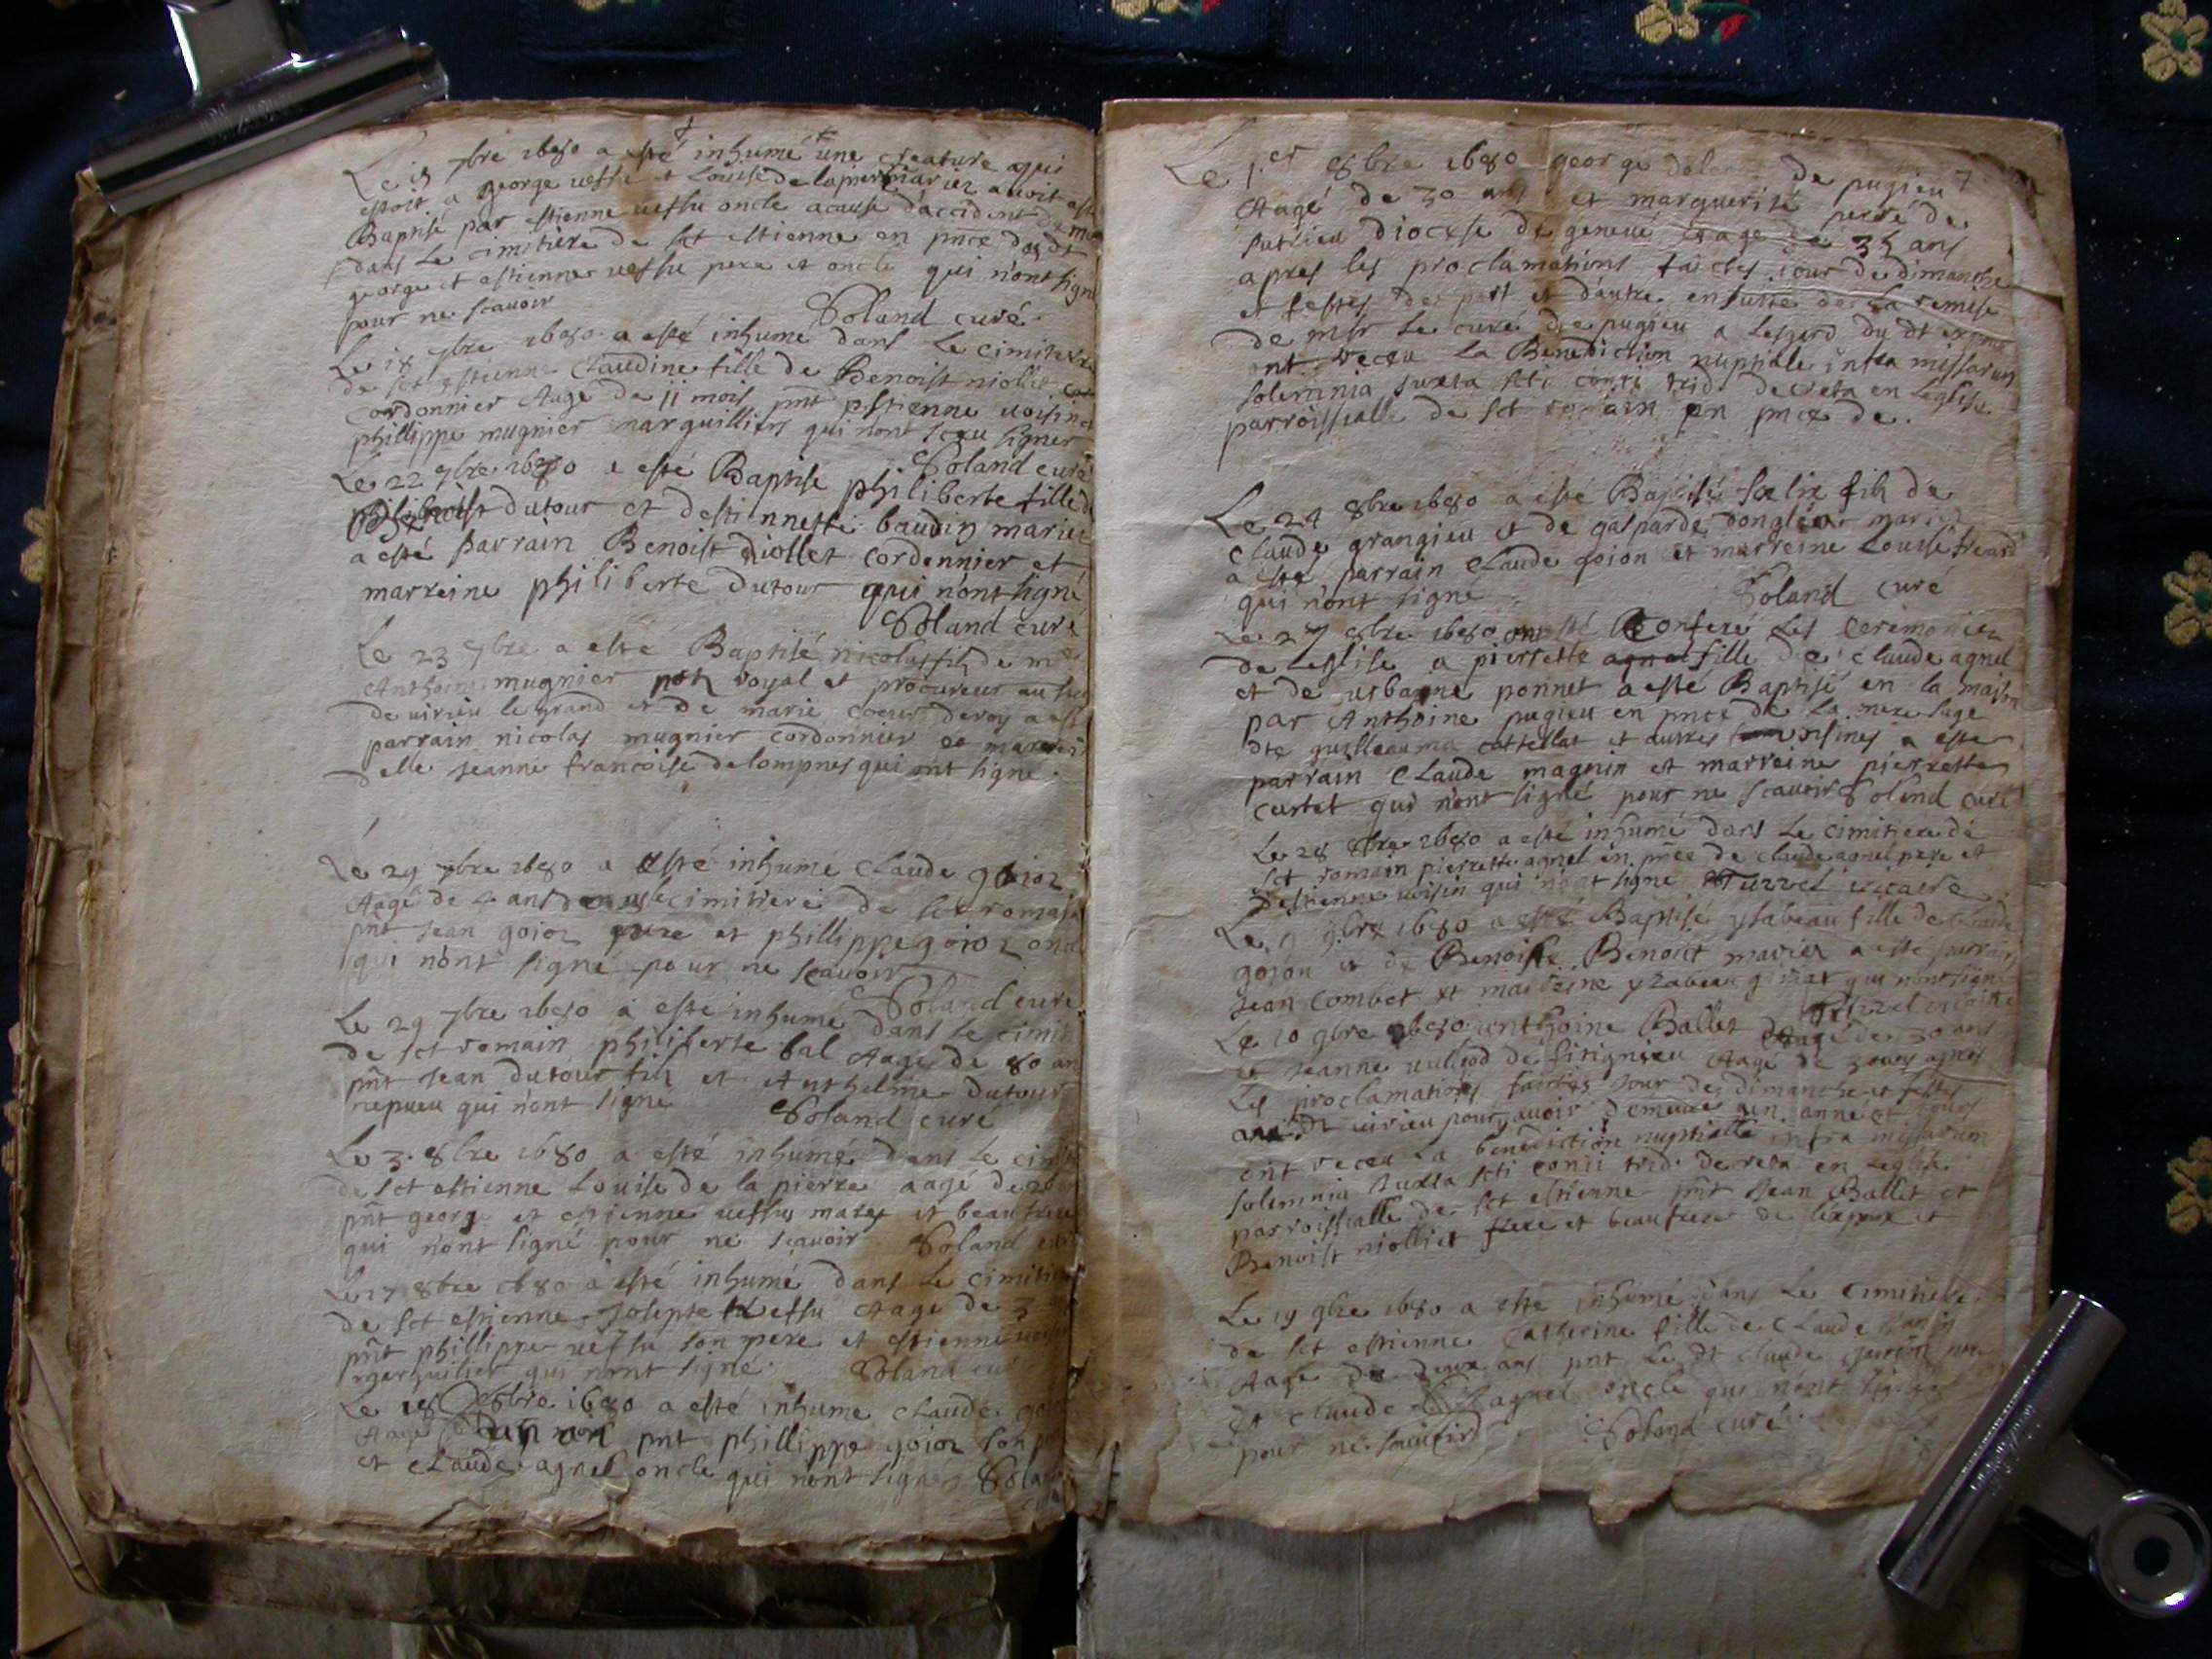 Le 15 7bre 1680 a esté inhumé une creature qui
estoit a george vessu et Louise de la pierre mariez avoit esté
Baptisé par estienne vessu oncle acause d'accident de
dans Le cimitiere de sct estienne en pnce des dt
george et estienne vessu pere et oncle qui n'ont signé
pour ne scavoir Soland curé
Le 18 7bre 1680 a esté inhumé dans Le cimitiere
de sct estienne Claudine fille de Benoist niollet
cordonnier Aagé de 11 mois pnt estienne voisin et
phillippe mugnier marguilliers qui n'ont sceu signer
Soland curé
Le 22 7bre 1680 a esté Baptisé philiberte fille de
Benoist dutour et destiennette baudin mariez
a esté parrain Benoist niollet cordonnier et
marreine philiberte dutour qui n'ont signé
Soland curé
Le 23 7bre a esté Baptisé nicolas filz de mre
Anthoine mugnier notr royal et procureur au
de virieu le grand et de marie coeur deroy a esté
parrain nicolas mugnier cordonnier et marreine
delle jeanne francoise delompnes qui ont signé.
Le 29 7bre 1680 a esté inhumé Claude goioz
Aagé de 4 ans dans le cimitiere de sct romain
pnt jean goioz pere et phillippe goioz oncle
qui n'ont signé pour ne scavoir
Soland curé
Le 29 7bre 1680 a esté inhumé dans le cimit
de sct romain philiberte bal Aagé de 80 an
pnt jean dutour filz et Anthelme dutour
nepveu qui n'ont signé Soland curé
Le 3. 8bre 1680 a esté inhumé dans Le cimit
de sct estienne Louise de la pierre aagé de
pnt george et estienne vessu marez et beau frere
qui n'ont signé pour ne scavoir Soland curé
Le 17 8bre 1680 a esté inhumé dans Le cimitiere
de sct estienne Josepte Vessu Aagé de 3
pnt phillippe vessu son pere et estienne voisin
marguilier qui n'ont signé. Soland curé
Le 18 8bre 1680 a esté inhumé Claude goioz
Aagé d'un moi pnt phillippe goioz son
et Claude agnel oncle qui n'ont signés Soland
curé
Le 1er 8bre 1680 george de pugieu
Aagé de 30 ans et marguerite perre de
sutrieu diocese de geneve et agé de 35 ans
apres les proclamations faictes jour de dimanche
et festes de part et d'autre ensuitte de La remise
de msr Le curé de pugieu a Lesgard du dt
ont receu La Benediction nuptiale infra missarum
solemnia juxta scti concii trid. decreta en Léglise
parroissialle de sct romain en pnce de.
Le 24 8bre 1680 a esté Baptisé felix filz de
Claude grangieu et de gasparde donglea mariez
a esté parrain Claude goion et marreine Louise
qui n'ont signé Soland curé
Le 27 8bre 1680 ont esté Conferé Les Ceremonies
de Leglise a pierrette fille de Claude agnel
et de urbanne ponnet a esté Baptisé en la maison
par Anthoine pugieu en pnce de La mere sage
dte guilleauma cattellat et autres voisines a esté
parrain Claude magnin et marreine pierrette
curtet qui n'ont signé pour ne scavoir Soland curé
Le 28 8bre 1680 a esté inhumé dans Le cimitiere de
sct romain pierrette agnel en pnce de claude agnel pere et
destienne voisin qui n'ont signé Turrel vicaire
Le 9bre 1680 a esté Baptisé ysabeau fille de Claude
goion et de Benoiste Benoist mariez a esté parrain
jean Combet et marreine ysabeau qui n'ont signé
Turrel vicaire
Le 10 9bre 1680 anthoine Ballet Aagé de 30 ans
et jeanne vulliod de sitignieu Aagé de 30 ans apres
Les proclamations faictes jour de dimanche et festes
au dt virieu pour y avoir demeuré un anne et jours
ont receu La benediction nuptialle infra missarum
solemnia juxta scti concii trid. decreta en Léglise
parroissialle de sct estienne pnt jean Ballet et
Benoist niolliet frere et beaufrere de lexpoux et
Le 19 9bre 1680 a esté inhumé dans Le cimitiere
de sct estienne Catherine fille de Claude
Aagé de deux ans pnt Le dt claude pere
et claude agnel oncle qui n'ont signé
pour ne scavoir Soland curé